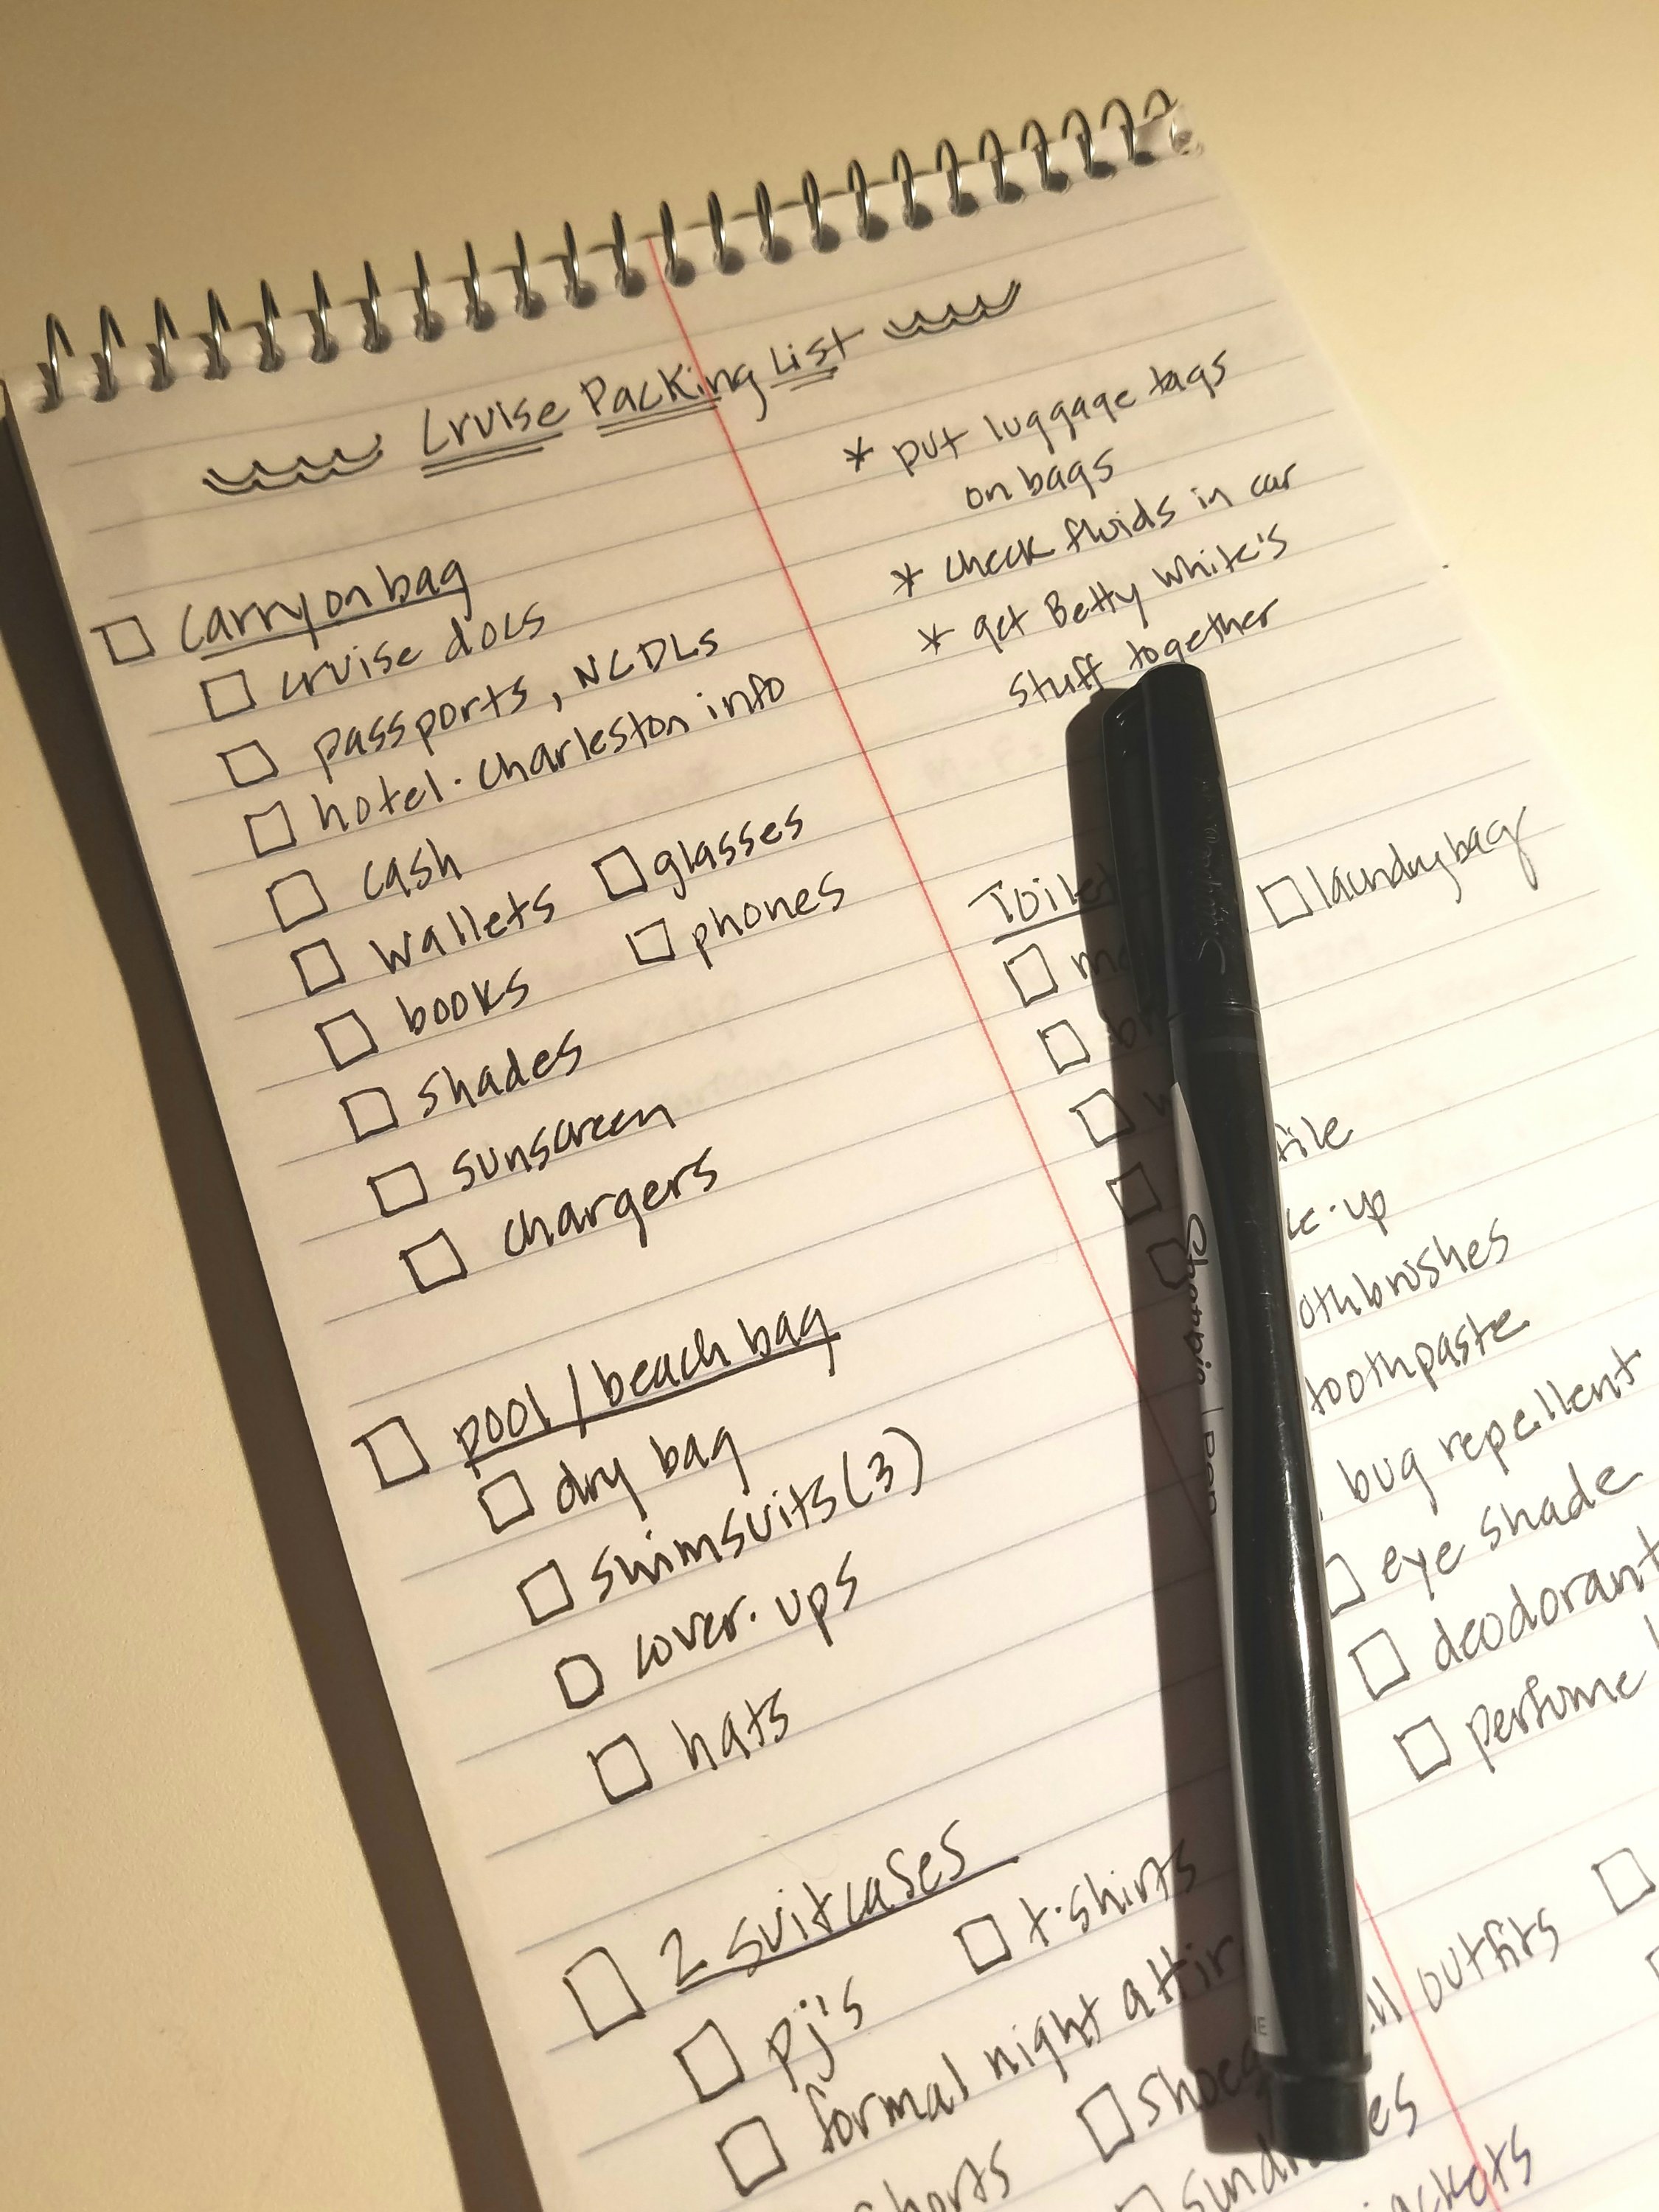 Cruise Packing List
* put luggage tags
on bags
* check fluids in car
* get Betty White's
stuff together
carry on bag
cruise docs
passports, NCDLs
hotel · Charleston info
cash
wallets
glasses
books
phones
shades
sunscreen
chargers
pool / beach bag
dry bag
swimsuits (3)
cover-ups
hats
2 suitcases
pj's
t-shirts
formal night
outfits
laundry bag
file
toothpaste
bug repellent
eye shade
deodorant
perfume
Sharpie